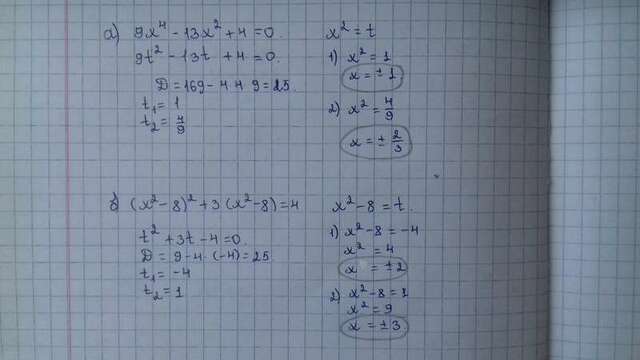 а) 9x⁴ - 13x² + 4 = 0. x² = t
9t² - 13t + 4 = 0.
D = 169 - 4·4·9 = 25
t₁ = 1
t₂ = 4/9
1) x² = 1
x = ±1.
2) x² = 4/9
x = ± 2/3
б) (x² - 8)² + 3(x² - 8) = 4 x² - 8 = t.
t² + 3t - 4 = 0.
D = 9 - 4·(-4) = 25
t₁ = -4
t₂ = 1
1) x² - 8 = -4
x² = 4
x = ±2
2) x² - 8 = 1
x² = 9
x = ±3